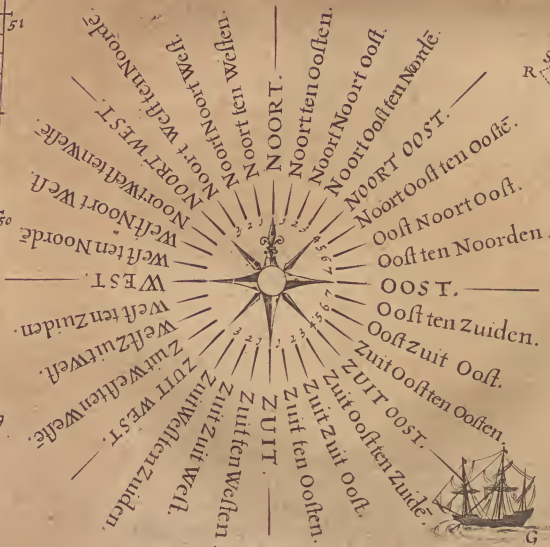 51
R
50
NOORT.
Noort ten Ooſten.
Noort Noort Ooſt.
Noort Ooſt ten Noordē.
NOORT OOST.
Noort Ooſt ten Ooſtē.
Ooſt Noort Ooſt.
Ooſt ten Noorden.
OOST.
Ooſt ten Zuiden.
Ooſt Zuit Ooſt.
Zuit Ooſt ten Ooſten.
ZUIT OOST.
Zuit ooſt ten Zuidē.
Zuit Zuit Ooſt.
Zuit ten Ooſten.
ZUIT.
Zuit ten Weſten
Zuit Zuit Weſt.
Zuit Weſten Zuiden.
ZUIT WEST.
Zuit Weſt ten Weſtē.
Weſt Zuit Weſt.
Weſt ten Zuiden.
WEST.
Weſt ten Noordē.
Weſt Noort Weſt.
Noort Weſt ten Weſtē.
NOORT WEST.
Noort Weſt ten Noordē.
Noort Noort Weſt.
Noort ten Weſten.
1 2 3 4 5 6 7
7 6 5 4 3 2 1
1 2 3
3 2 1
G